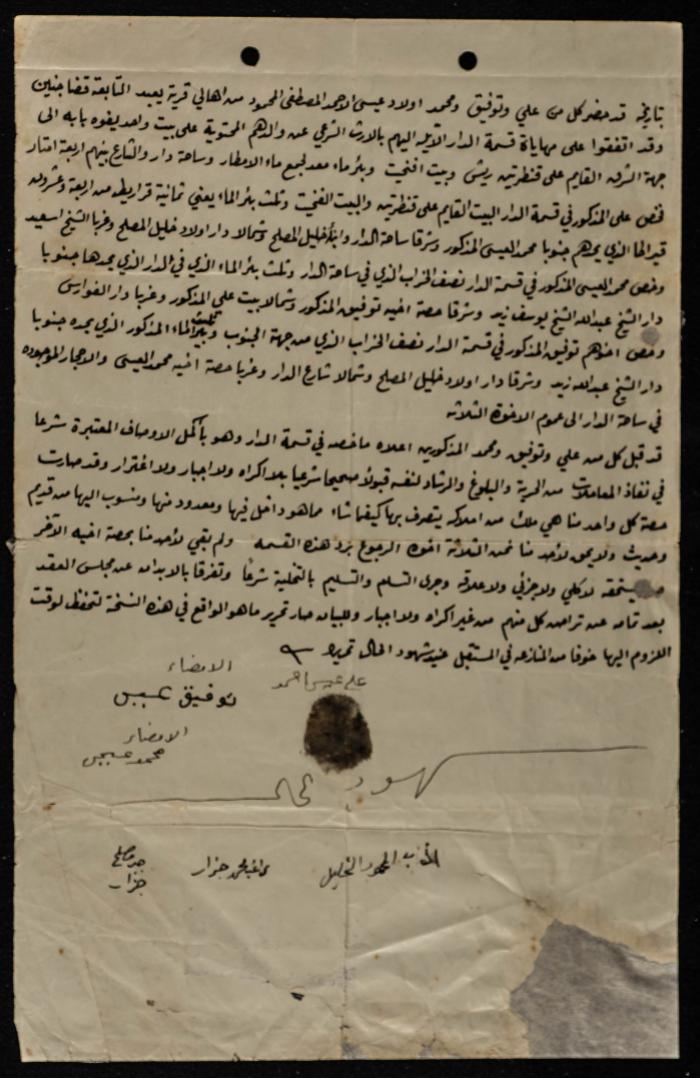 بتاريخه قد حضر كل من علي وتوفيق ومحمد اولاد عيسى الاحمد المصطفى المحمود من اهالي قرية يعبد التابعة قضا جنين
وقد اتفقوا على مهاياة قسمة الدار الآيله اليهم بالارث الشرعي عن والدهم المحتوية على بيت واحد يفوه بابه الى
جهة الشرق القايم على قنطرتين ريش وبيت افنيت وبئر ماء معد لجمع ماء الامطار وساحة دار والشارع بينهم اربعة امتار
فخص علي المذكور في قسمة الدار البيت القايم على قنطرتين والبيت الفنيت وثلث بئر الماء يعني ثمانية قراريط من اربعة وعشرون
قيراط الذي يحدهم جنوبا محمد العيسى المذكور وشرقا ساحة الدار وابنه خليل المصلح وشمالا دار اولاد خليل المصلح وغربا الشيخ اسعيد
وخص محمد العيسى المذكور في قسمة الدار نصف الخراب الذي في ساحة الدار وثلث بئر الماء الذي في الدار الذي يحدها جنوبا
دار الشيخ عبد الله الشيخ يوسف زيد وشرقا حصة اخيه توفيق المذكور وشمالا بيت علي المذكور وغربا دار الفوارس
وخص اخوهم توفيق المذكور في قسمة الدار نصف الخراب الذي من جهة الجنوب وثلث بئر الماء المذكور الذي يحده جنوبا
دار الشيخ عبد الله زيد وشرقا دار اولاد خليل المصلح وشمالا شارع الدار وغربا حصة اخيه محمد العيسى والاحجار الموجوده
في ساحة الدار الى عموم الاخوة الثلاثه
قد قبل كل من علي وتوفيق ومحمد المذكورين اعلاه ما خصه في قسمة الدار وهو بأكمل الاوصاف المعتبرة شرعا
في نفاذ المعاملات من الحرية والبلوغ والرشاد لنفسه قبولا صحيحا شرعيا بلا اكراه ولا اجبار ولا اغترار وقد صارت
حصة كل واحد منا هي ملك من املاكه يتصرف بها كيفما شاء مما هو داخل فيها ومعدود منها ومنسوب اليها من قديم
وحديث ولا يحق لأحد منا نحن الثلاثة اخوة الرجوع برد هذه القسمه ولم بقي لأحد منا بحصة اخيه الآخر
يستحقه لا كلي ولا جزئي ولا علاقه وجرى التسلم والتسليم بالتخلية شرعا وتفرقا بالابدان عن مجلس العقد
بعد تمامه عن تراض كل منهم من غير اكراه ولا اجبار وللبيان صار تحرير ما هو الواقع في هذه النسخة لتحفظ لوقت
اللزوم اليها خوفا من المنازعه في المستقبل عند شهود الحال تحريرا
الامضاء
علي عيسى احمد
توفيق عيسى
الامضاء
محمد عيسى
شهود الحال
المحمود الخليل
جرار
جرار